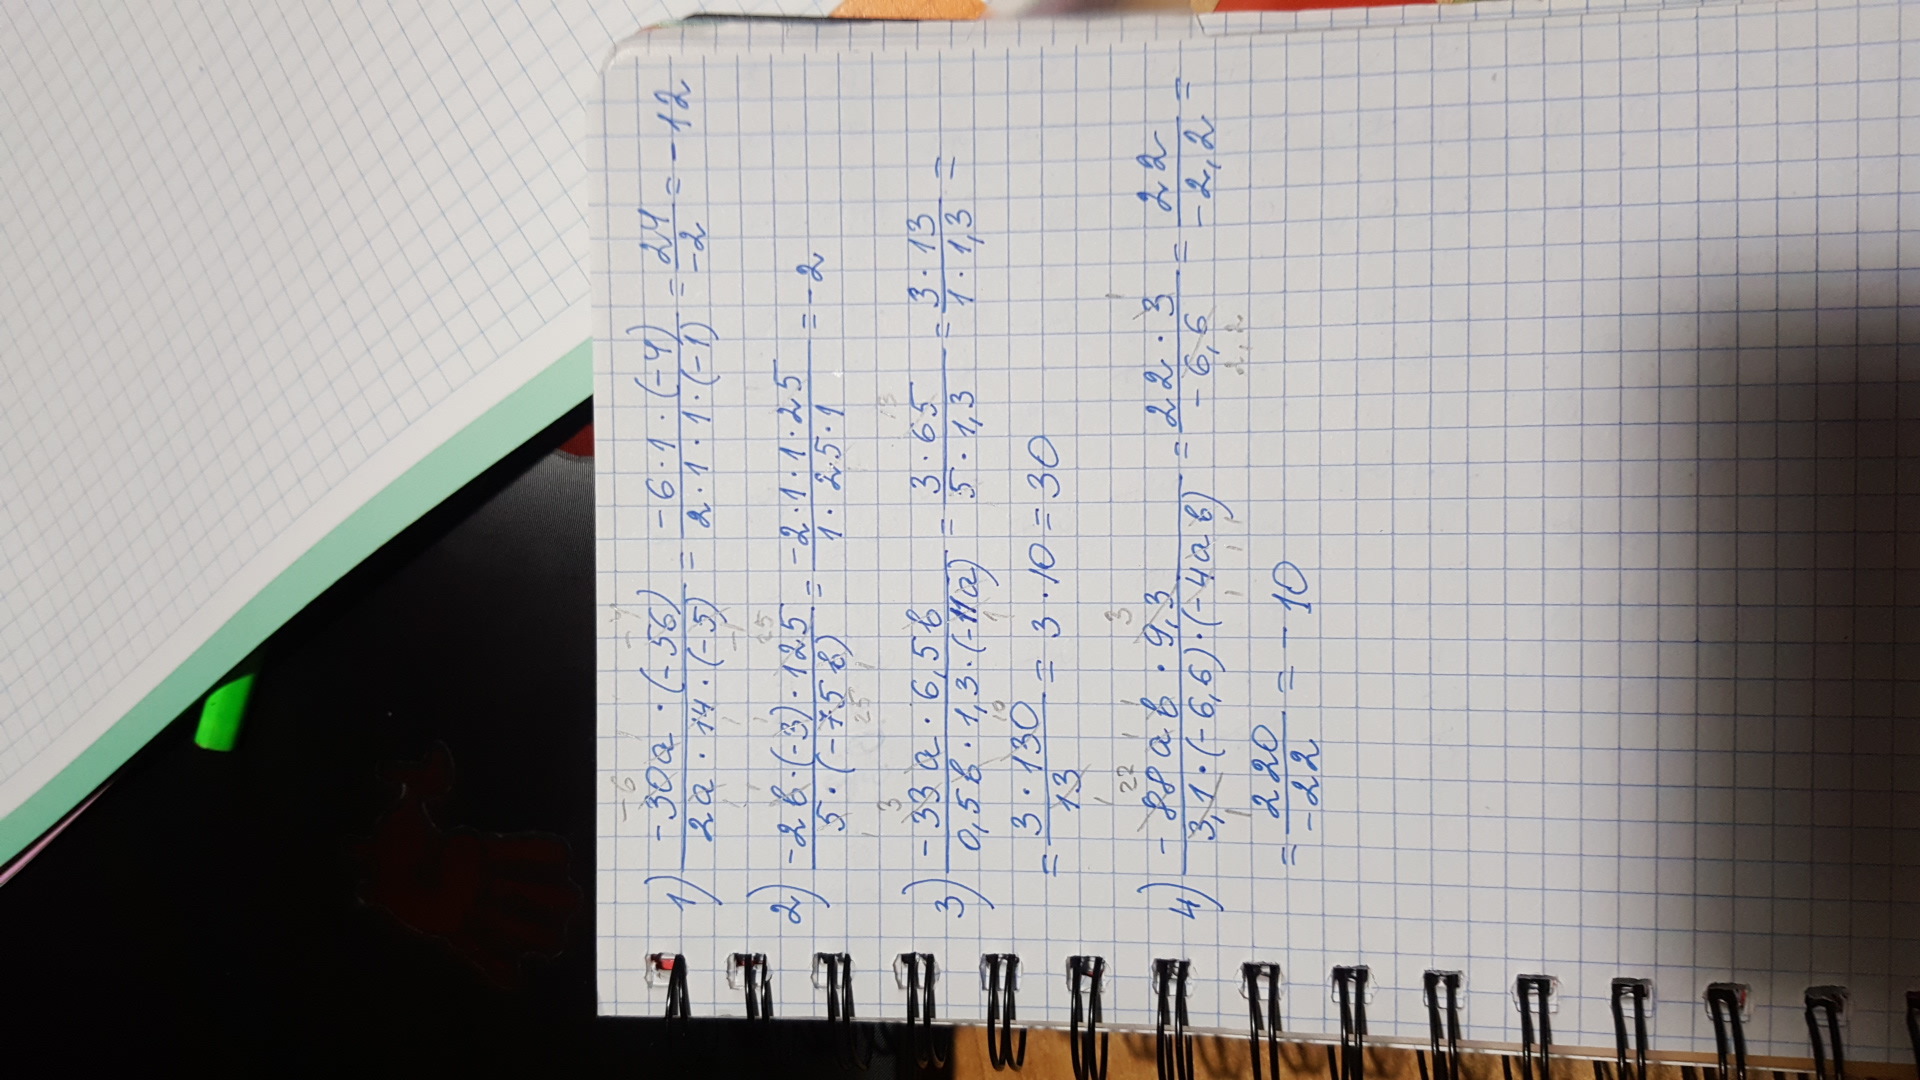 1) -30a · (-56) / 2a · 14 · (-5) = -6 · 1 · (-4) / 2 · 1 · 1 · (-1) = 24 / -2 = -12
2) -2в · (-3) · 125 / 5 · (-75в) = -2 · 1 · 1 · 25 / 1 · 25 · 1 = -2
3) -33a · 6,5в / 0,5в · 1,3 · (-11a) = 3 · 65 / 5 · 1,3 = 3 · 13 / 1 · 1,3 =
= 3 · 130 / 13 = 3 · 10 = 30
4) -88aв · 9,3 / 3,1 · (-6,6) · (-4aв) = 22 · 3 / -6,6 = 22 / -2,2 =
= 220 / -22 = -10